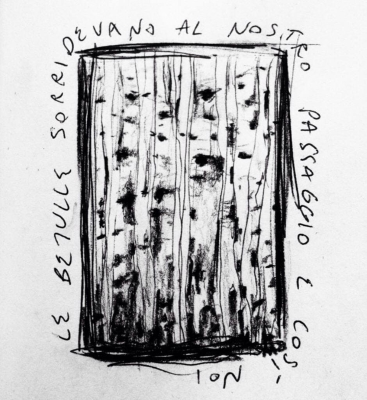 LE BETULLE SORRI
DEVANO AL NOSTRO
PASSAGGIO E COSI'
NOI